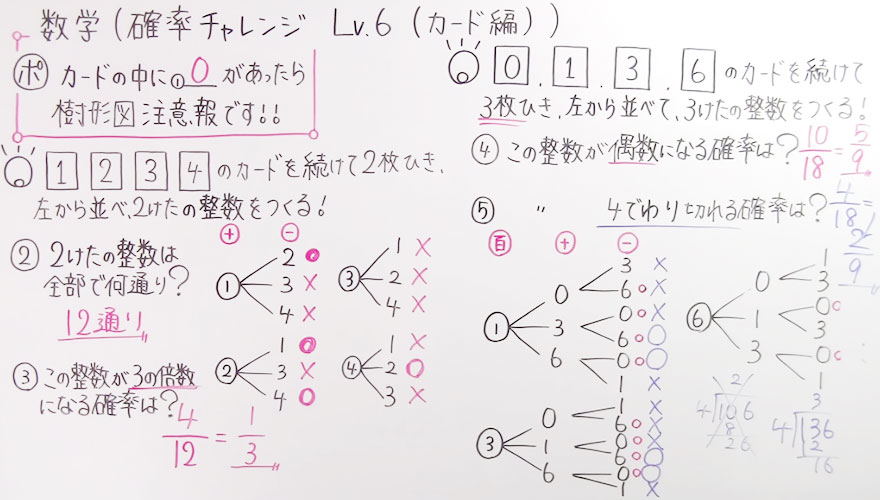 数学(確率チャレンジ Lv.6 (カード編))
ポ カードの中に① 0 があったら
樹形図注意報です!!
1 2 3 4 のカードを続けて2枚ひき、
左から並べ、2けたの整数をつくる!
② 2けたの整数は
全部で何通り?
12通り
③ この整数が3の倍数
になる確率は?
4/12 = 1/3
+ −
① 2 ○
3 ×
4 ×
② 1 ○
3 ×
4 ○
③ 1 ×
2 ×
4 ×
④ 1 ×
2 ○
3 ×
0 . 1 . 3 . 6 のカードを続けて
3枚ひき、左から並べて、3けたの整数をつくる!
④ この整数が偶数になる確率は? 10/18 = 5/9
⑤ 〃 4でわり切れる確率は? 4/18 = 2/9
百 + −
① 0 3 ×
6 ○ ×
3 0 ○ ×
6 ○ ○
6 0 ○ ○
1 ×
③ 0 1 ×
6 ○ ×
1 0 ○ ×
6 ○ ○
6 0 ○ ○
1 ×
⑥ 0 1
3
1 0 ○
3
3 0 ○
1
2
4)106
8
26
3
4)136
12
16